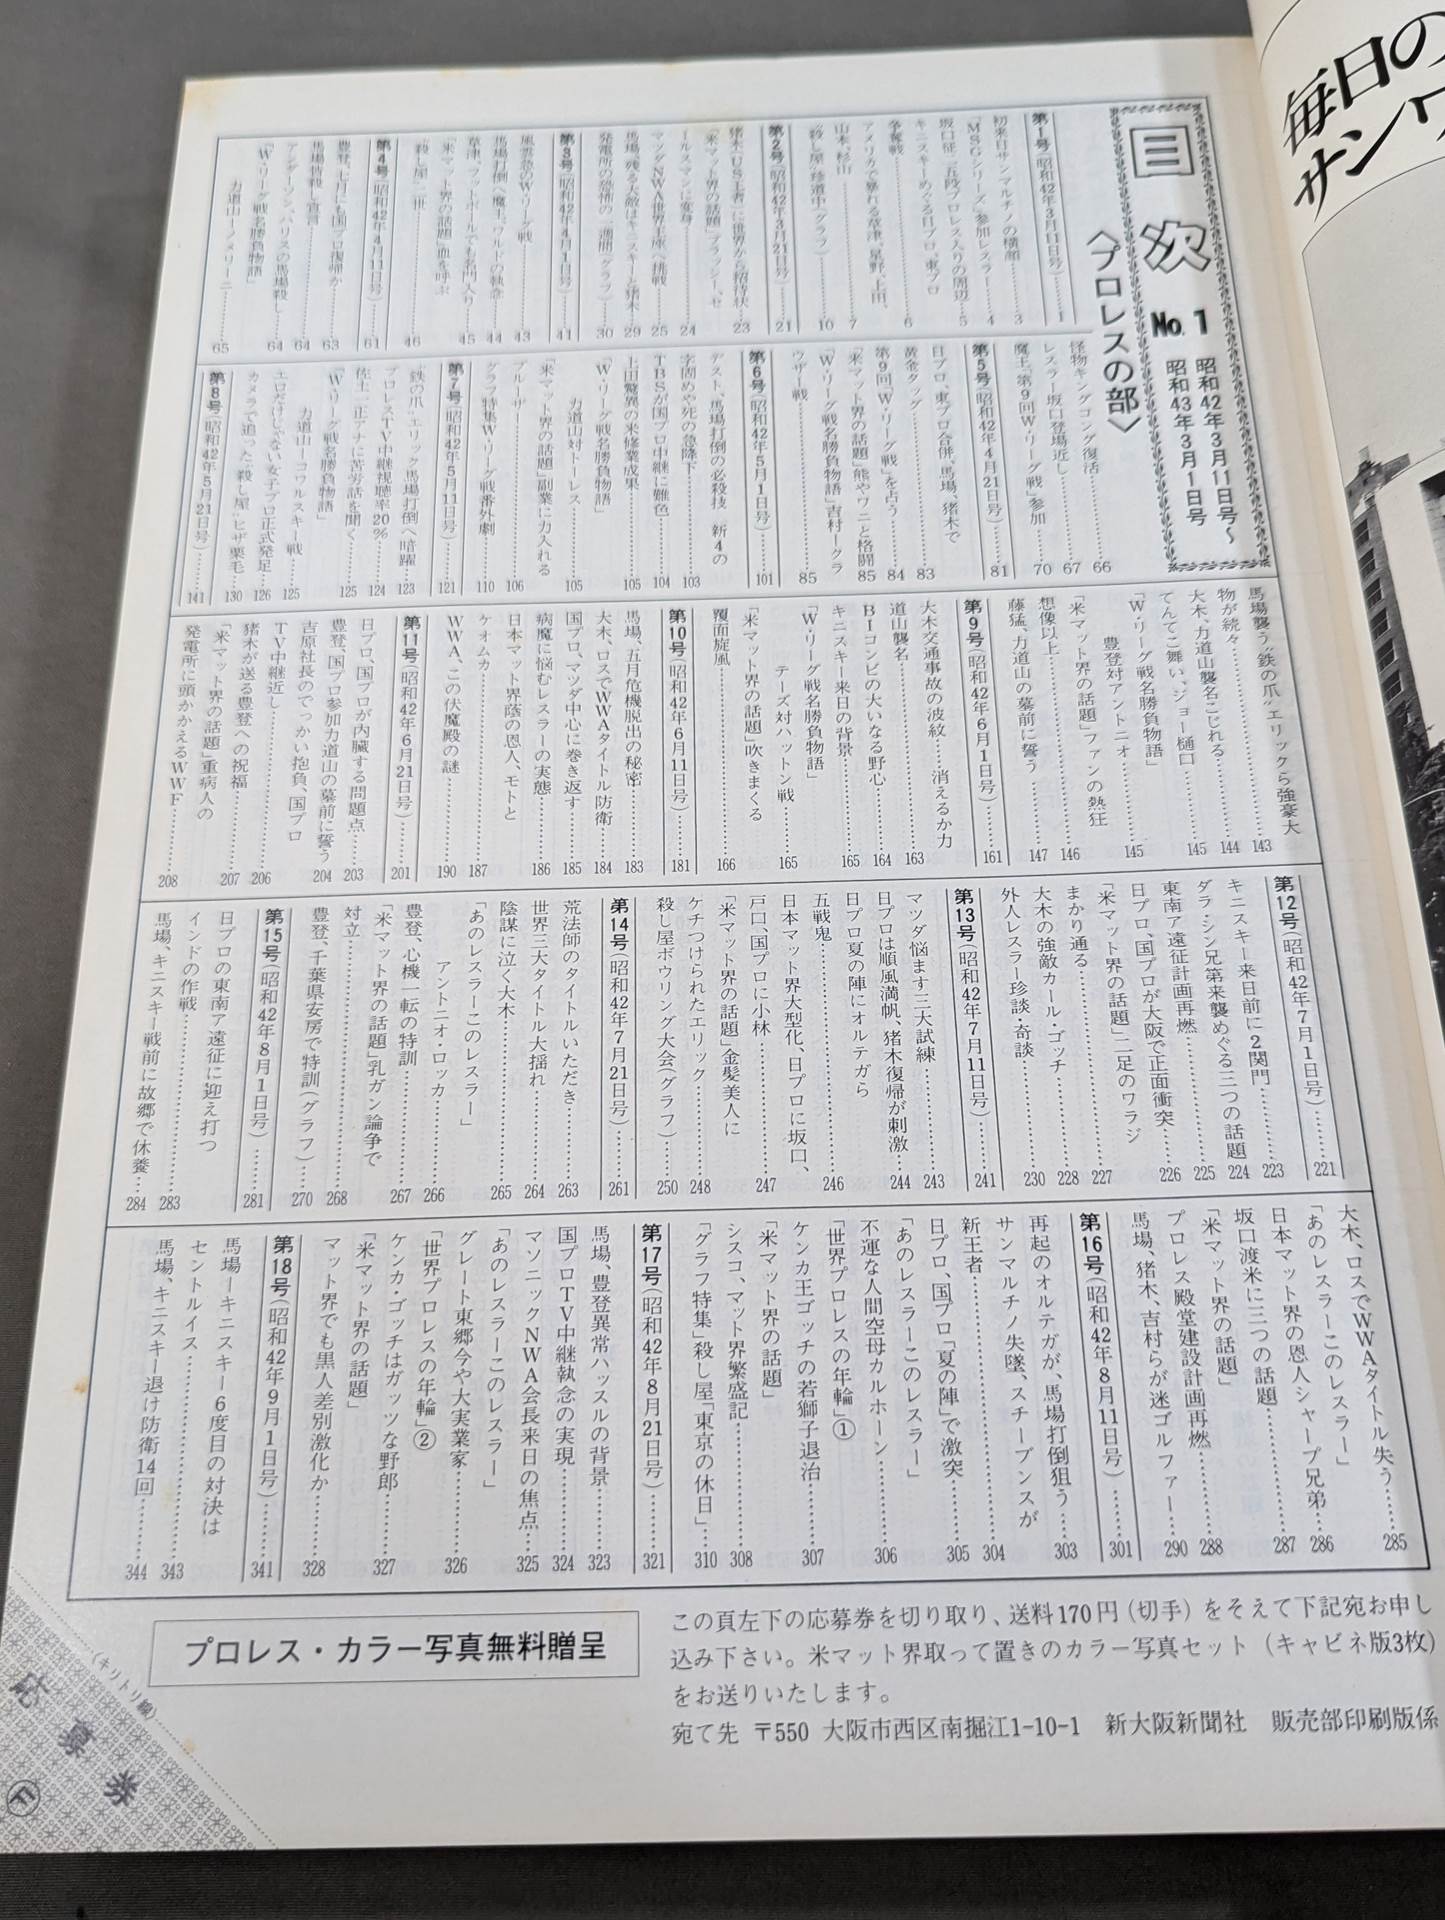 目次 No.1
昭和42年3月11日号〜
昭和43年3月1日号
〈プロレスの部〉
第1号(昭和42年3月11日号)……1
初来日サンマルチノの横顔……3
「MSGシリーズ」参加レスラー……4
坂口征二五段プロレス入りの周辺……5
キニスキーめぐる日プロ、東プロ
争奪戦……6
アメリカで暴れる草津、星野、上田、
山本、杉山……7
“殺し屋”珍道中(グラフ)……10
第2号(昭和42年3月21日号)……21
猪木(US王者)に世界から招待状……23
「米マット界の話題」ブラッシー、セ
ールスマンに変身……24
マツダNWA世界王座へ挑戦……25
馬場、残る大敵はキニスキーと猪木……29
発電所の恐怖の一週間(グラフ)……30
第3号(昭和42年4月1日号)……41
風雲急のW・リーグ戦……43
馬場打倒へ魔王、ワルドの執念……44
草津、フットボールでも名門入り……45
「米マット界の話題」血を呼ぶ
“殺し屋”二世……46
第4号(昭和42年4月11日号)……61
豊登、七月にも国プロ復帰か……63
馬場皆殺し宣言……64
アンダーソン、ハリスの馬場殺し……64
「W・リーグ戦名勝負物語」
力道山―オルテガ……65
怪物キングコング復活……66
レスラー坂口登場近し……67
魔王、第9回W・リーグ戦」参加……70
第5号(昭和42年4月21日号)……81
日プロ、東プロ合併、馬場、猪木で
黄金タッグ……83
第9回「W・リーグ戦」を占う……84
「米マット界の話題」熊やワニと格闘……85
「W・リーグ戦名勝負物語」吉村―グラ
ウザー戦……85
第6号(昭和42年5月1日号)……101
デスト、馬場打倒の必殺技 新4の
字固めや死の急降下……103
TBSが国プロ中継に難色……104
上田驚異の米修業成果……105
「W・リーグ戦名勝負物語」
力道山対トーレス……105
「米マット界の話題」副業に力入れる
ブルーザー……106
グラフ特集W・リーグ戦番外劇……110
第7号(昭和42年5月11日号)……121
“鉄の爪”エリック馬場打倒へ暗躍……123
プロレスTV中継視聴率20%……124
佐土一正アナに苦労話を聞く……125
「W・リーグ戦名勝負物語」
力道山―コワルスキー戦……125
エロだけじゃない女子プロ正式発足……126
カメラで追った“殺し屋”ヒザ栗毛……130
第8号(昭和42年5月21日号)……141
馬場襲う“鉄の爪”エリックら強豪大
物が続々……143
大木、力道山襲名こじれる……144
てんてこ舞い、ジョー樋口……145
「W・リーグ戦名勝負物語」
豊登対アントニオ……145
「米マット界の話題」ファンの熱狂
想像以上……146
藤猛、力道山の墓前に誓う……147
第9号(昭和42年6月1日号)……161
大木交通事故の波紋……消えるか力
道山襲名……163
BIコンビの大いなる野心……164
キニスキー来日の背景……165
「W・リーグ戦名勝負物語」
テーズ対ハットン戦……165
「米マット界の話題」吹きまくる
覆面旋風……166
第10号(昭和42年6月11日号)……181
馬場、五月危機脱出の秘密……183
大木、ロスでWWAタイトル防衛……184
国プロ、マツダ中心に巻き返す……185
病魔に悩むレスラーの実態……186
日本マット界蔭の恩人、モトと
ケオムカ……187
WWA、この伏魔殿の謎……190
第11号(昭和42年6月21日号)……201
日プロ、国プロが内臓する問題点……203
豊登、国プロ参加力道山の墓前に誓う……204
吉原社長のでっかい抱負、国プロ
TV中継近し……206
猪木が送る豊登への祝福……207
「米マット界の話題」重病人の
発電所に頭かかえるWWF……208
第12号(昭和42年7月1日号)……221
キニスキー来日前に2関門……223
ダラ・シン兄弟来襲めぐる三つの話題……224
東南ア遠征計画再燃……225
日プロ、国プロが大阪で正面衝突……226
「米マット界の話題」二足のワラジ
まかり通る……227
大木の強敵カール・ゴッチ……228
外人レスラー珍談・奇談……230
第13号(昭和42年7月11日号)……241
マツダ悩ます三大試練……243
日プロは順風満帆、猪木復帰が刺激……244
日プロ夏の陣にオルテガら
五戦鬼……246
日本マット界大型化、日プロに坂口、
戸口、国プロに小林……247
「米マット界の話題」金髪美人に
ケチつけられたエリック……248
殺し屋ボウリング大会(グラフ)……250
第14号(昭和42年7月21日号)……261
荒法師のタイトルいただき……263
世界三大タイトル大揺れ……264
陰謀に泣く大木……265
「あのレスラーこのレスラー」
アントニオ・ロッカ……266
豊登、心機一転の特訓……267
「米マット界の話題」乳ガン論争で
対立……268
豊登、千葉県安房で特訓(グラフ)……270
第15号(昭和42年8月1日号)……281
日プロの東南ア遠征に迎え打つ
インドの作戦……283
馬場、キニスキー戦前に故郷で休養……284
大木、ロスでWWAタイトル失う……285
「あのレスラーこのレスラー」
日本マット界の恩人シャープ兄弟……286
坂口渡米に三つの話題……287
「米マット界の話題」
プロレス殿堂建設計画再燃……288
馬場、猪木、吉村らが迷ゴルファー……290
第16号(昭和42年8月11日号)……301
再起のオルテガが、馬場打倒狙う……303
サンマルチノ失墜、スチーブンスが
新王者……304
日プロ、国プロ「夏の陣」で激突……305
「あのレスラーこのレスラー」
不運な人間空母カルホーン……306
「世界プロレスの年輪」①
ケンカ王ゴッチの若獅子退治……307
「米マット界の話題」
シスコ、マット界繁盛記……308
「グラフ特集」殺し屋「東京の休日」……310
第17号(昭和42年8月21日号)……321
馬場、豊登異常ハッスルの背景……323
国プロTV中継執念の実現……324
マソニックNWA会長来日の焦点……325
「あのレスラーこのレスラー」
グレート東郷今や大実業家……326
「世界プロレスの年輪」②
ケンカ・ゴッチはガッツな野郎……327
「米マット界の話題」
マット界でも黒人差別激化か……328
第18号(昭和42年9月1日号)……341
馬場―キニスキー6度目の対決は
セントルイス……343
馬場、キニスキー退け防衛14回……344
プロレス・カラー写真無料贈呈
この頁左下の応募券を切り取り、送料170円(切手)をそえて下記宛お申し
込み下さい。米マット界取って置きのカラー写真セット(キャビネ版3枚)
をお送りいたします。
宛て先 〒550 大阪市西区南掘江1-10-1 新大阪新聞社 販売部印刷版係
(キリトリ線)
応募券
Ⓕ
毎日の
サンワ